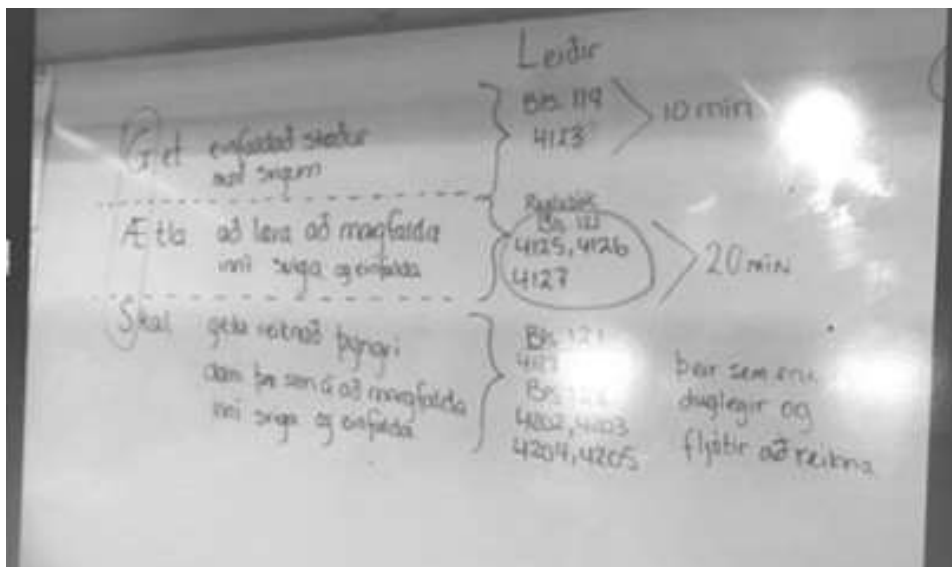 Leiðir
Get einfaldað stæður
með svigum
Bls. 119
4123
10 min
Ætla að læra að margfalda
inni sviga og einfalda
Bls. 121
4125, 4126
4127
20 min
Skal geta reiknað þyngri
dæm þar sem á að margfalda
inni sviga og einfalda
Bls. 121
Bls.
4202, 4203
4204, 4205
þeir sem eru
duglegir og
fljótir að reikna